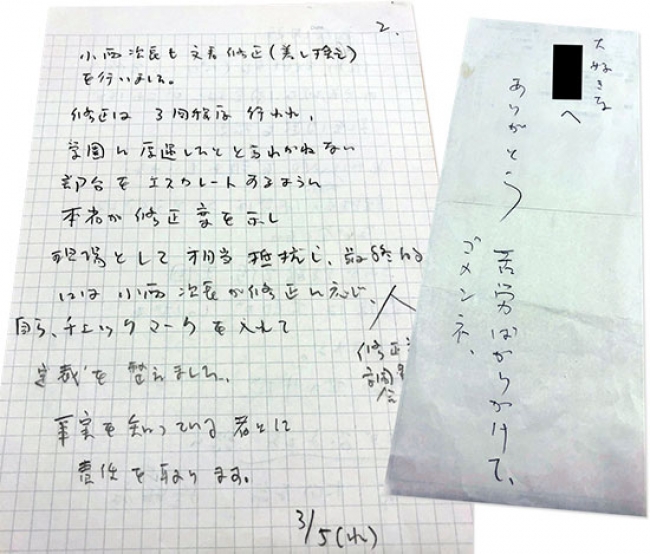 2.
小西次長も文書修正(差し換え)
を行いました。
修正は3回程度行われ、
学園に厚遇したと言われかねない
部分を
本省が修正案を示し
現場として相当抵抗し、最終的
には小西次長が修正に応じ、
自らチェックマークを入れて
定裁を整えました。
事実を知っている者として
責任を取ります。
3/5(月)
修正
学園
大好きな
へ
ありがとう
苦労ばかりかけて、
ゴメンネ、